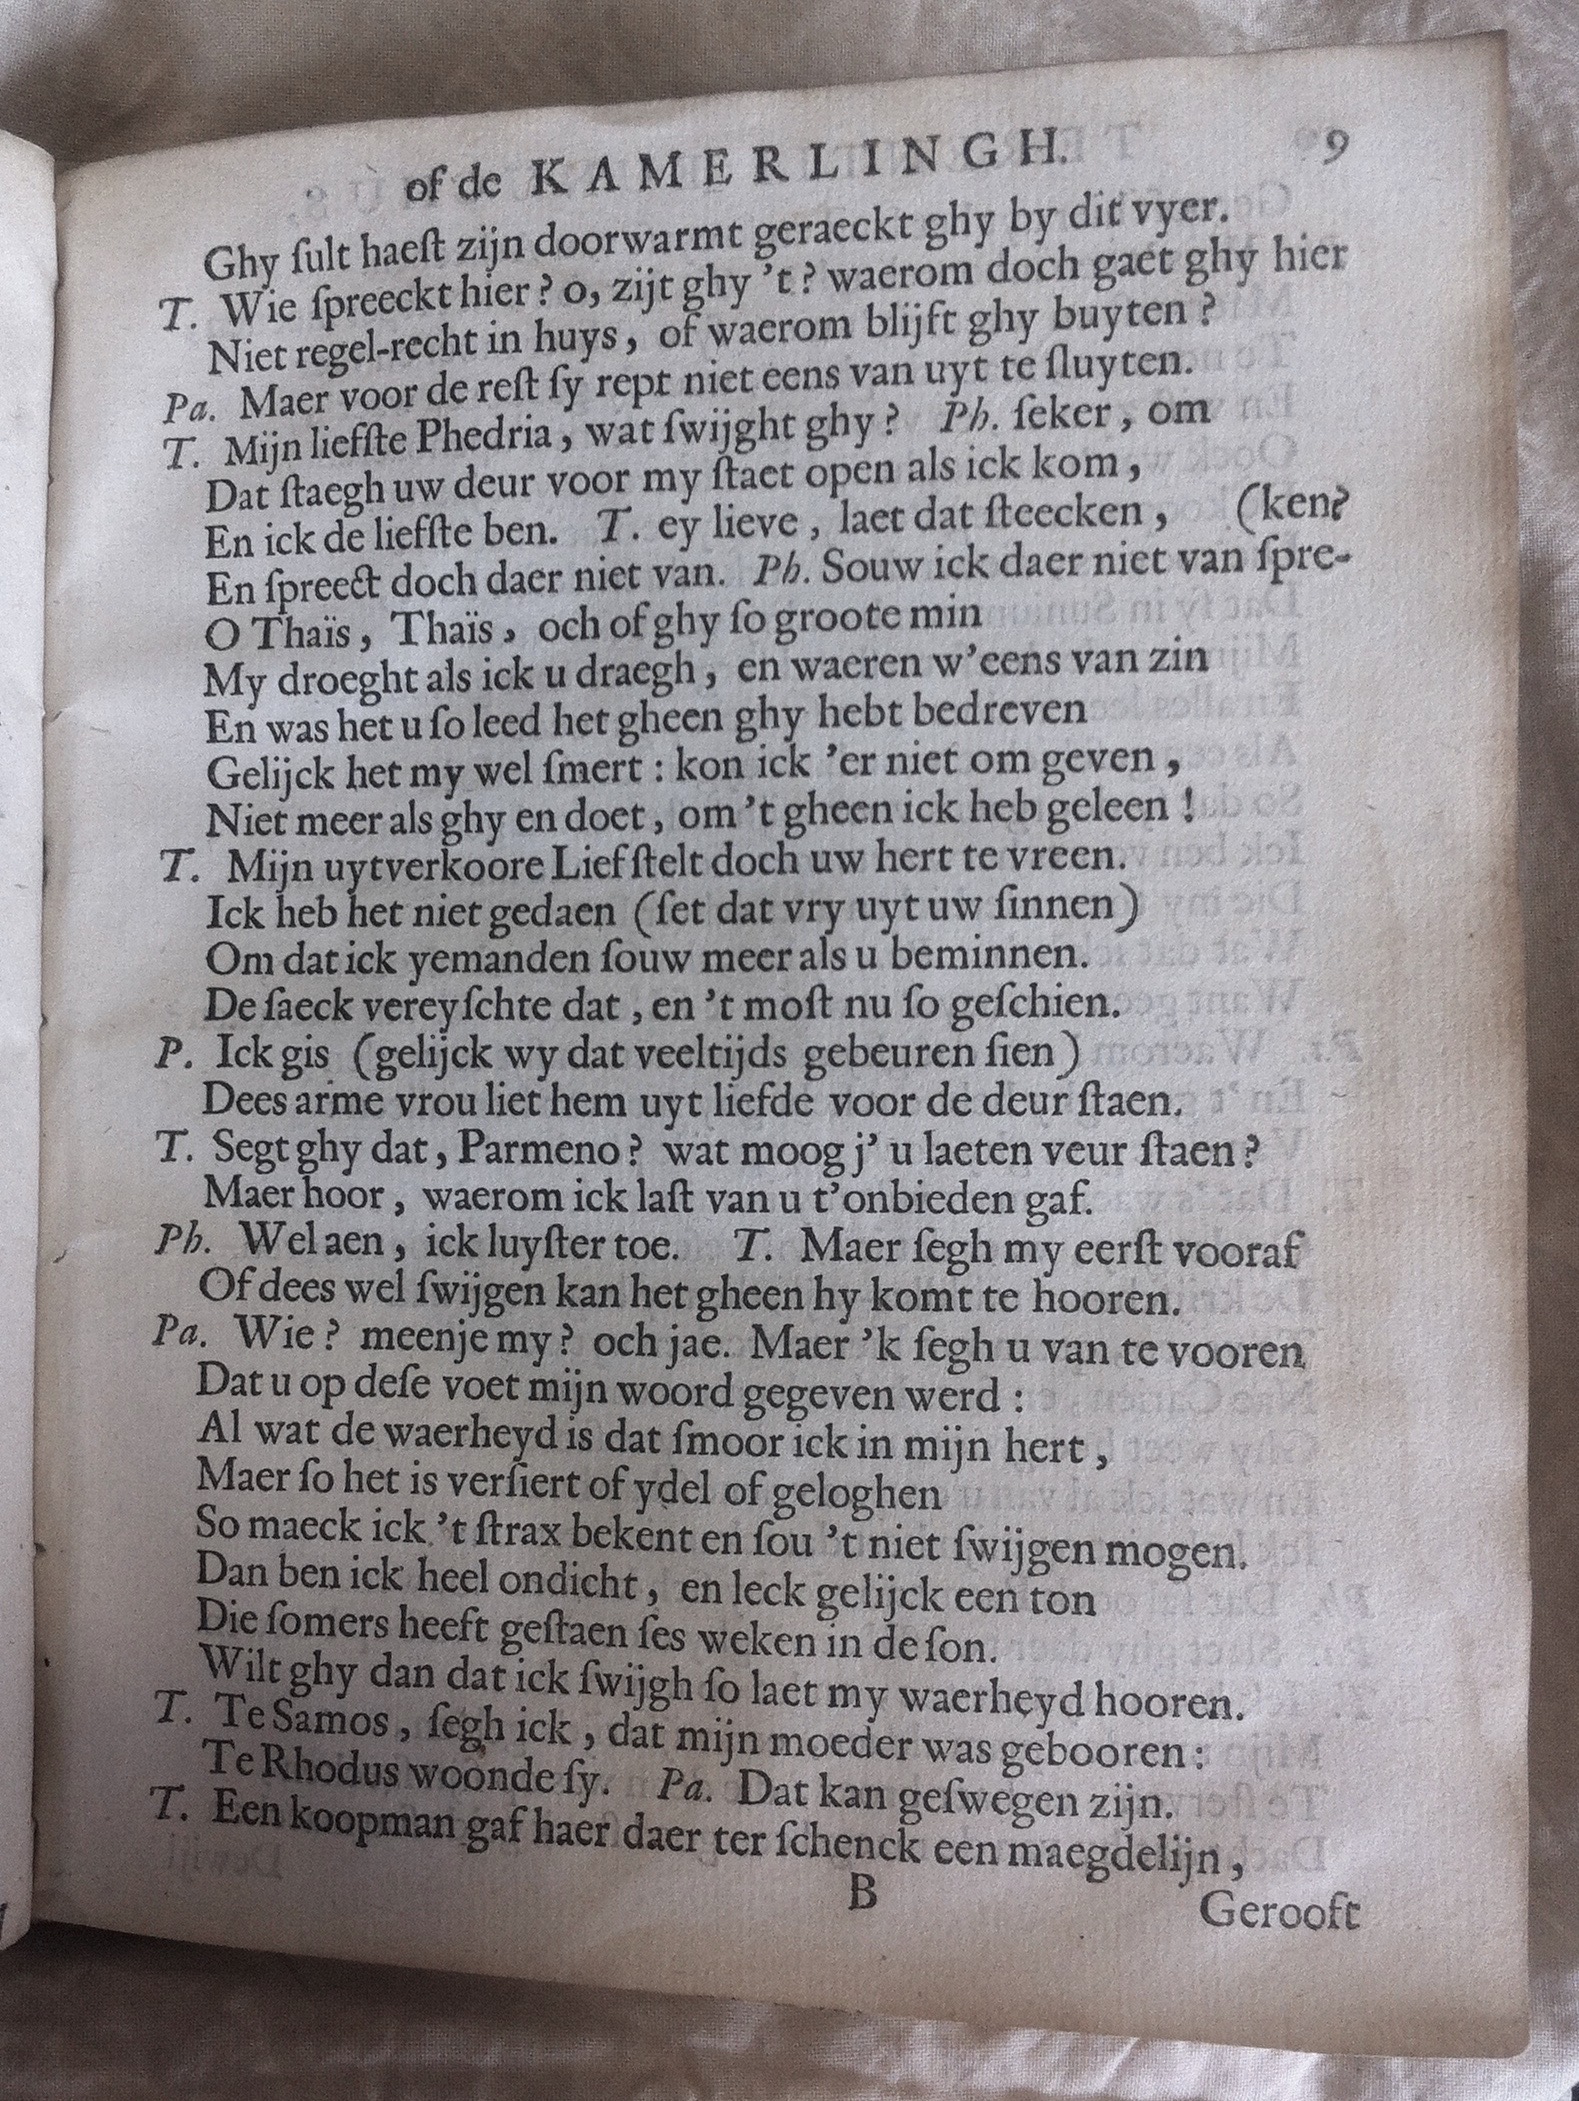 of de KAMERLINGH. 9
Ghy ſult haeſt zijn doorwarmt geraeckt ghy by dit vyer.
T. Wie ſpreeckt hier? o, zijt ghy 't? waerom doch gaet ghy hier
Niet regel-recht in huys, of waerom blijft ghy buyten?
Pa. Maer voor de reſt ſy rept niet eens van uyt te ſluyten.
T. Mijn liefſte Phedria, wat ſwijght ghy? Ph. ſeker, om
Dat ſtaegh uw deur voor my ſtaet open als ick kom,
En ick de liefſte ben. T. ey lieve, laet dat ſteecken, (ken?
En ſpreeckt doch daer niet van. Ph. Souw ick daer niet van ſpre-
O Thaïs, Thaïs, och of ghy ſo groote min
My droeght als ick u draegh, en waeren w'eens van zin
En was het u ſo leed het gheen ghy hebt bedreven
Gelijck het my wel ſmert: kon ick 'er niet om geven,
Niet meer als ghy en doet, om 't gheen ick heb geleen!
T. Mijn uytverkoore Lief ſtelt doch uw hert te vreen.
Ick heb het niet gedaen (ſet dat vry uyt uw ſinnen)
Om dat ick yemanden ſouw meer als u beminnen.
De ſaeck vereyſchte dat, en 't moſt nu ſo geſchien.
P. Ick gis (gelijck wy dat veeltijds gebeuren ſien)
Dees arme vrou liet hem uyt liefde voor de deur ſtaen.
T. Segt ghy dat, Parmeno? wat moog j' u laeten veur ſtaen?
Maer hoor, waerom ick laſt van u t'onbieden gaf.
Ph. Wel aen, ick luyſter toe. T. Maer ſegh my eerſt vooraf
Of dees wel ſwijgen kan het gheen hy komt te hooren.
Pa. Wie? meenje my? och jae. Maer 'k ſegh u van te vooren
Dat u op deſe voet mijn woord gegeven werd:
Al wat de waerheyd is dat ſmoor ick in mijn hert,
Maer ſo het is verſiert of ydel of geloghen
So maeck ick 't ſtrax bekent en ſou 't niet ſwijgen mogen.
Dan ben ick heel ondicht, en leck gelijck een ton
Die ſomers heeft geſtaen ſes weken in de ſon.
Wilt ghy dan dat ick ſwijgh ſo laet my waerheyd hooren.
T. Te Samos, ſegh ick, dat mijn moeder was gebooren:
Te Rhodus woonde ſy. Pa. Dat kan geſwegen zijn.
T. Een koopman gaf haer daer ter ſchenck een maegdelijn,
B
Gerooft